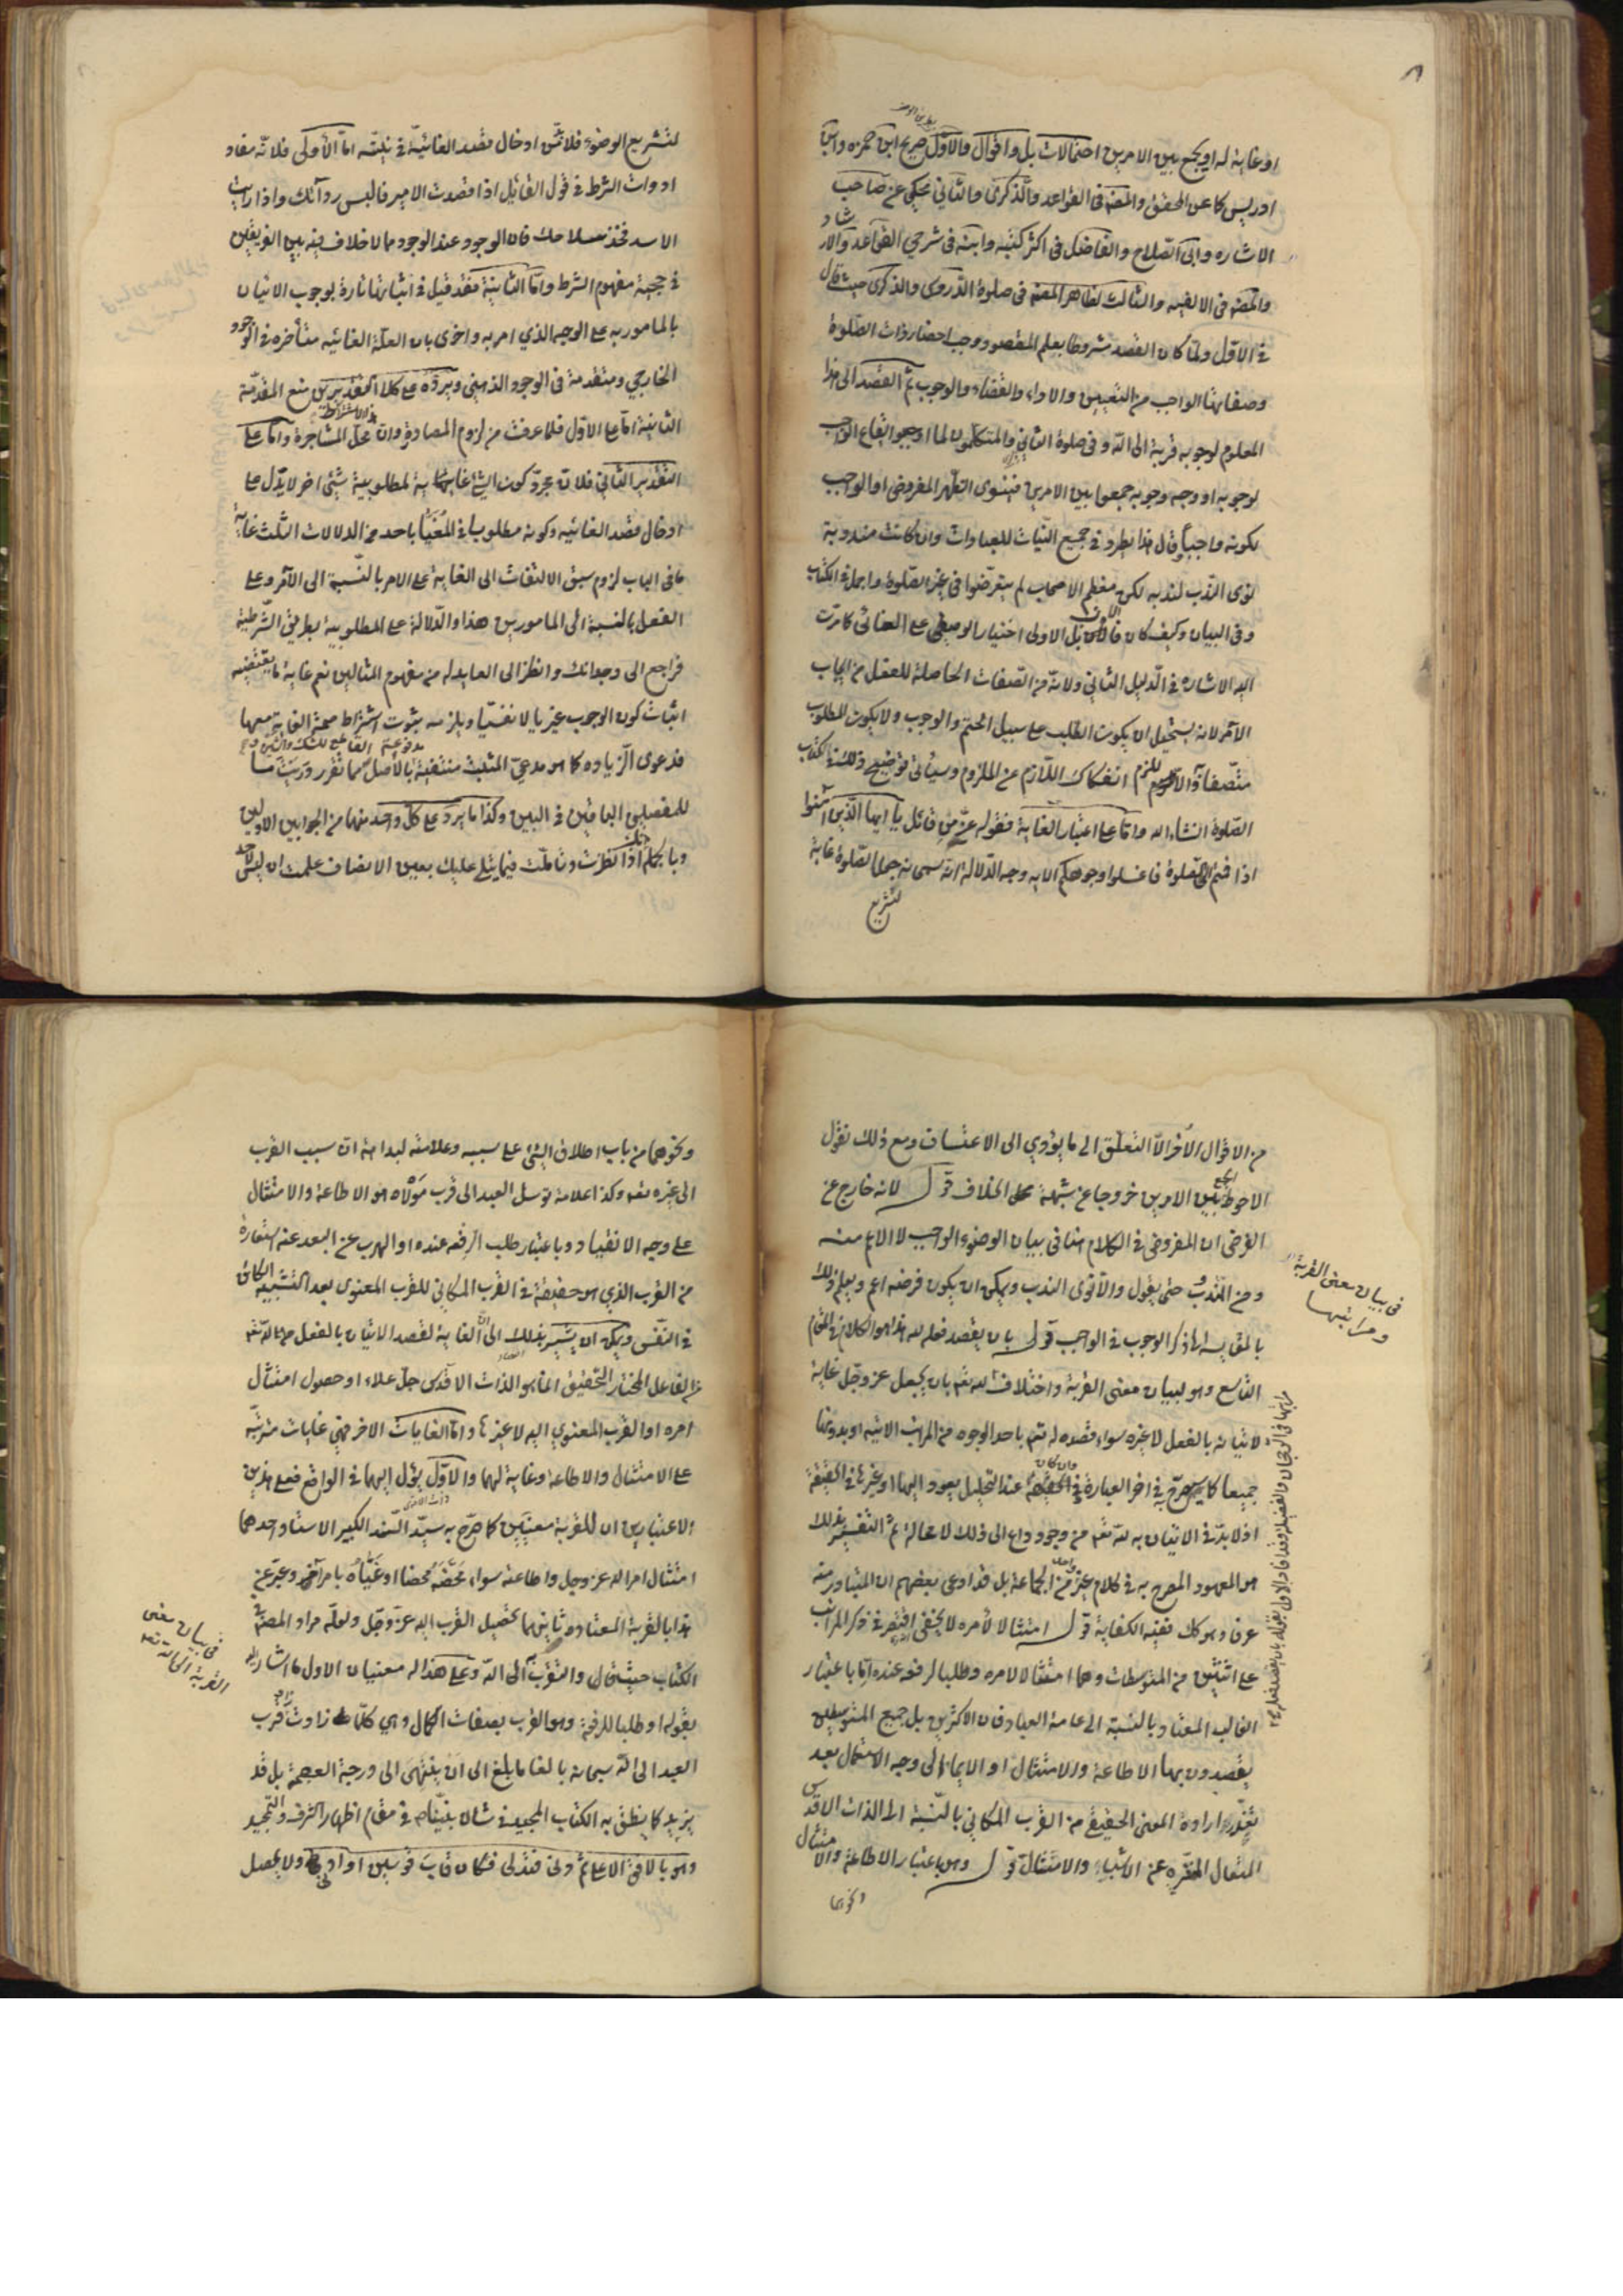 او غاية له او يجمع بين الامرين احتمالات بل واقوال والاوّل صريح ابن حمزه وابنا
ادريس كما عن المحقق والمصنّف فى القواعد والذكرى والثاني محكي عن صاحب
الاشاره وابى الصلاح والفاضل فى اكثر كتبه وابنه فى شرحي القواعد والارشاد
والمصنّف فى الالفيه والثالث لظاهر المصنّف فى صلوة الدروس والذكرى حيث قال
فى الاوّل ولمّا كان القصد مشروطا بعلم المقصود وجب احضار ذات الصّلوة
وصفاتها الواجب من التعيين والاداء والقضاء والوجوب ثمّ القصد الى هذا
المعلوم لوجوبه قربة الى الله وفى صلوة الثاني والمتكلمون لما اوجبوا ايقاع الواجب
لوجوبه او وجه وجوبه جمعوا بين الامرين فينوى الظهر المفروض او الواجب
لكونه واجباً قال هذا يطرد فى جميع النّيات للعبادات وان كانت مندوبة
نوى الندب لندبه لكن معظم الاصحاب لم يتعرّضوا فى غير الصّلوة
وفى البيان وكيف كان بل الاولى اختيار الوصفى على الغائى كما مرّت
اليه الاشاره فى الدّليل الثاني ولانّه من الصّفات الحاصلة للفعل من ايجاب
الآمر لانه يستحيل ان يكون الطلب على سبيل الحتم والوجوب ولا يكون المطلوب
متّصفا به والا لزم انفكاك اللّازم عن الملزوم وسياتى توضيح ذلك فى كتاب
الصّلوة انشاء الله وامّا على اعتبار الغاية فقوله عزّ من قائل يا ايها الّذين آمنوا
اذا قمتم الى الصّلوة فاغسلوا وجوهكم الايه وجه الدّلالة انّه سبحانه جعل الصّلوة غاية
لتشريع
لتشريع الوضوء فلا بدّ من ادخال قصد الغائيّة فى نيّته امّا الأولى فلانّه مفاد
ادوات الشرط فى قول القائل اذا قصدت الامير فالبس ردائك واذا رايت
الاسد فخذ سلاحك فان الوجود عند الوجود مما لا خلاف فيه بين الفريقين
فى حجية مفهوم الشرط وامّا الثانية فقد قيل فى اثباتها تارة بوجوب الاتيان
بالمامور به على الوجه الذي امر به واخرى بان العلّة الغائيه متأخره فى الوجود
الخارجي ومتقدمة فى الوجود الذهنى ويردّه على كلا التقديرين منع المقدّمة
الثانية امّا على الاوّل فلما عرفت من لزوم المصادرة وان محلّ المشاجرة وامّا على
التقدير الثانى فلان مجرّد كون الشئ غاية لمطلوبية شئ اخر لا يدّل على
ادخال قصد الغائيه وكونه مطلوبا فى المُغَيّا باحد من الدلالات الثلث غاية
ما فى الباب لزوم سبق الالتفات الى الغاية على الامر بالنّسبة الى الآمر وعلى
الفعل بالنسبة الى المامورين هذا والدّلالة على المطلوبية بطريق الشّرطية
فراجع الى وجدانك وانظر الى العايد له من مفهوم المثالين نعم غاية ما يقتضيه
اثبات كون الوجوب غيريا لا نفسيّا ويلزمه ثبوت اشتراط صحة الغاية معها
فدعوى الزياده كما هو مدعى المثبت منتفية بالأصل
للمفصلين وكذا ما يرد على كلّ واحد منهما من الجوابين الاولين
وبالجملة اذا نظرت وتأملت فيما يتلى عليك بعين الانصاف علمت ان ليس لاحد
من الاقوال الأخر الّا التعلّق الى ما يؤدي الى الاعتساف ومع ذلك نقول
الاحوط الجمع بين الامرين خروجا عن شبهة الخلاف قوله لانه خارج عن
الفرض ان المفروض فى الكلام هنا فى بيان الوضوء الواجب لا الاعم منه
ومن المندوب حتى يقول والاقوى الندب ويمكن ان يكون فرضه اعم ويعلم ذلك
بالمقايسه الى ذكر الوجوب فى الواجب قوله بان يقصد فعله لله هذا هو الكلام فى المقام
التاسع وهو لبيان معنى القربة واختلاف بان يجعل عز وجل غاية
لاتيانه بالفعل لا غيره سواء قصده له تعم باحد الوجوه من المراتب الاتيه او بدونها
جميعا كما يصرّح به فى اخر العبارة عند التحليل يعود اليها او غيرها فى الحقيقة
اذ لا بدّ فى الاتيان به لله تعم من وجود داع الى ذلك لا محالة ثمّ التفسير بذلك
هو المعهود المصرح به فى كلام الجماعة بل قد ادعى بعضهم ان المتبادر منه
عرفا وهو كك ففيه الكفاية قوله امتثالا لأمره لا يخفى اقتصر فى ذكر المراتب
على اثنتين من المتوسطات وهما امتثالا لامره وطلبا لرفعه عنده امّا باعتبار
الغالب المعتاد وبالنسبة الى عامة العباد فان الاكثرين بل جميع المتوسطين
يقصدون بها الاطاعة والامتثال او الايماء الى وجه الاستعمال بعد
تعذّر ارادة المعنى الحقيقي من القرب المكاني بالنّسبة الى الذات الاقدس
المتعال المنزّه عن الاشباه والامتثال قوله وهو باعتبار الاطاعة والامتثال
ونحوهما
فى بيان معنى القربة
ومراتبها
ونحوهما من باب اطلاق الشئ على سببه وعلامته لبداهة ان سبب القرب
الى غيره وكذا علامة توسل العبد الى قرب مولاه هو الاطاعة والامتثال
على وجه الانقياد وباعتبار طلب الرفعه عنده او الهرب عن البعد عنه استعارة
من القرب الذي هو حقيقة فى القرب المكاني للقرب المعنوى بعد التشبيه الكائن
فى النفس ويمكن ان يشير بذلك الى انّ الغاية لقصد الاتيان بالفعل
الفاعل المختار التحقيق انما هو الذات الاقدس جلّ علاه او حصول امتثال
امره او القرب المعنوي اليه لا غير وامّا الغايات الاخر فهى غايات مترتّبة
على الامتثال والاطاعة وغاية لهما والاوّل يؤل اليهما فى الواقع فعلى هذين
الاعتبارين ان للقربة معنيين كما صرّح به سيّد السّند الكبير الاستاد احدهما
امتثال امر الله عز وجل واطاعته سواء مَحّضَه مَحضا او غَيّاه بامر آخر وعبّر عن
هذا بالقربة المعتاده وثانيهما تحصيل القرب اليه عزّ وجّل ولعلّه مراد المصنّف فى
الكتاب حيث قال والتقرّب به الى الله وعلى هذا له معنيان الاول ما اشار اليه
بقوله او طلبا للرفعة وهو القرب بصفات الكمال وهي كلّما زادت زاد قرب
العبد الى الله سبحانه بالغا ما بلغ الى ان ينتهى الى درجة العصمة بل قد
يزيد كما ينطق به الكتاب المجيد فى شان نبيّنا فى مقام اظهار الشرف والتمجيد
وهو بالافق الاعلى ثمّ دنى فتدلى فكان قاب قوسين او ادنى ولا يحصل
فى بيان معنى
القربة الى الله تعم